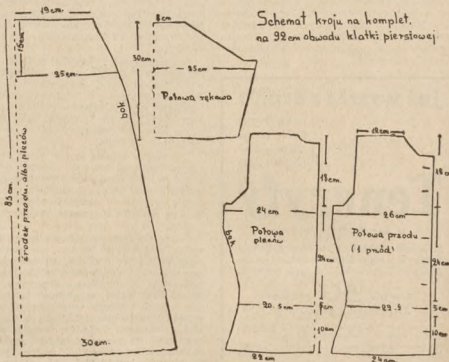 Schemat kroju na komplet.
na 92 cm obwodu klatki piersiowej
19 cm.
15 cm
25 cm
bok
83 cm
środek przodu. albo pleców
30 cm.
8 cm
30 cm.
25 cm
Połowa rękawa
18 cm.
24 cm
Połowa
pleców
bok
24 cm
20.5 cm
5 cm
10 cm
22 cm
12 cm
18 cm
26 cm
Połowa przodu
(1 przód)
24 cm
22.5
5 cm
10 cm
24 cm